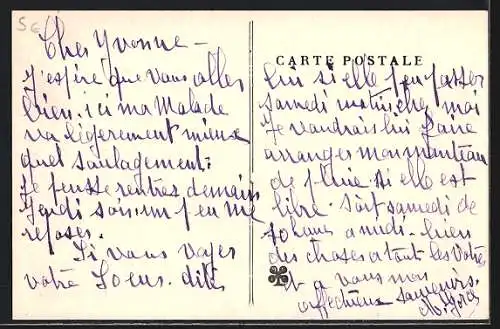 5€
Cher Yvonne —
J'espère que vous allez
bien. ici ma Malade
va légerement mieux
quel soulagement.
Je pense rentrer demain
Jeudi soir un peu me
reposer.
Si vous voyez
votre Soeur. dites
CARTE POSTALE
lui si elle peu passer
samedi matin chez moi
Je voudrais lui faire
arranger mon manteau
de pluie si elle est
libre. soit samedi de
10 heures a midi. bien
des choses a tout les votres
et a vous mes
affectueux souvenirs.